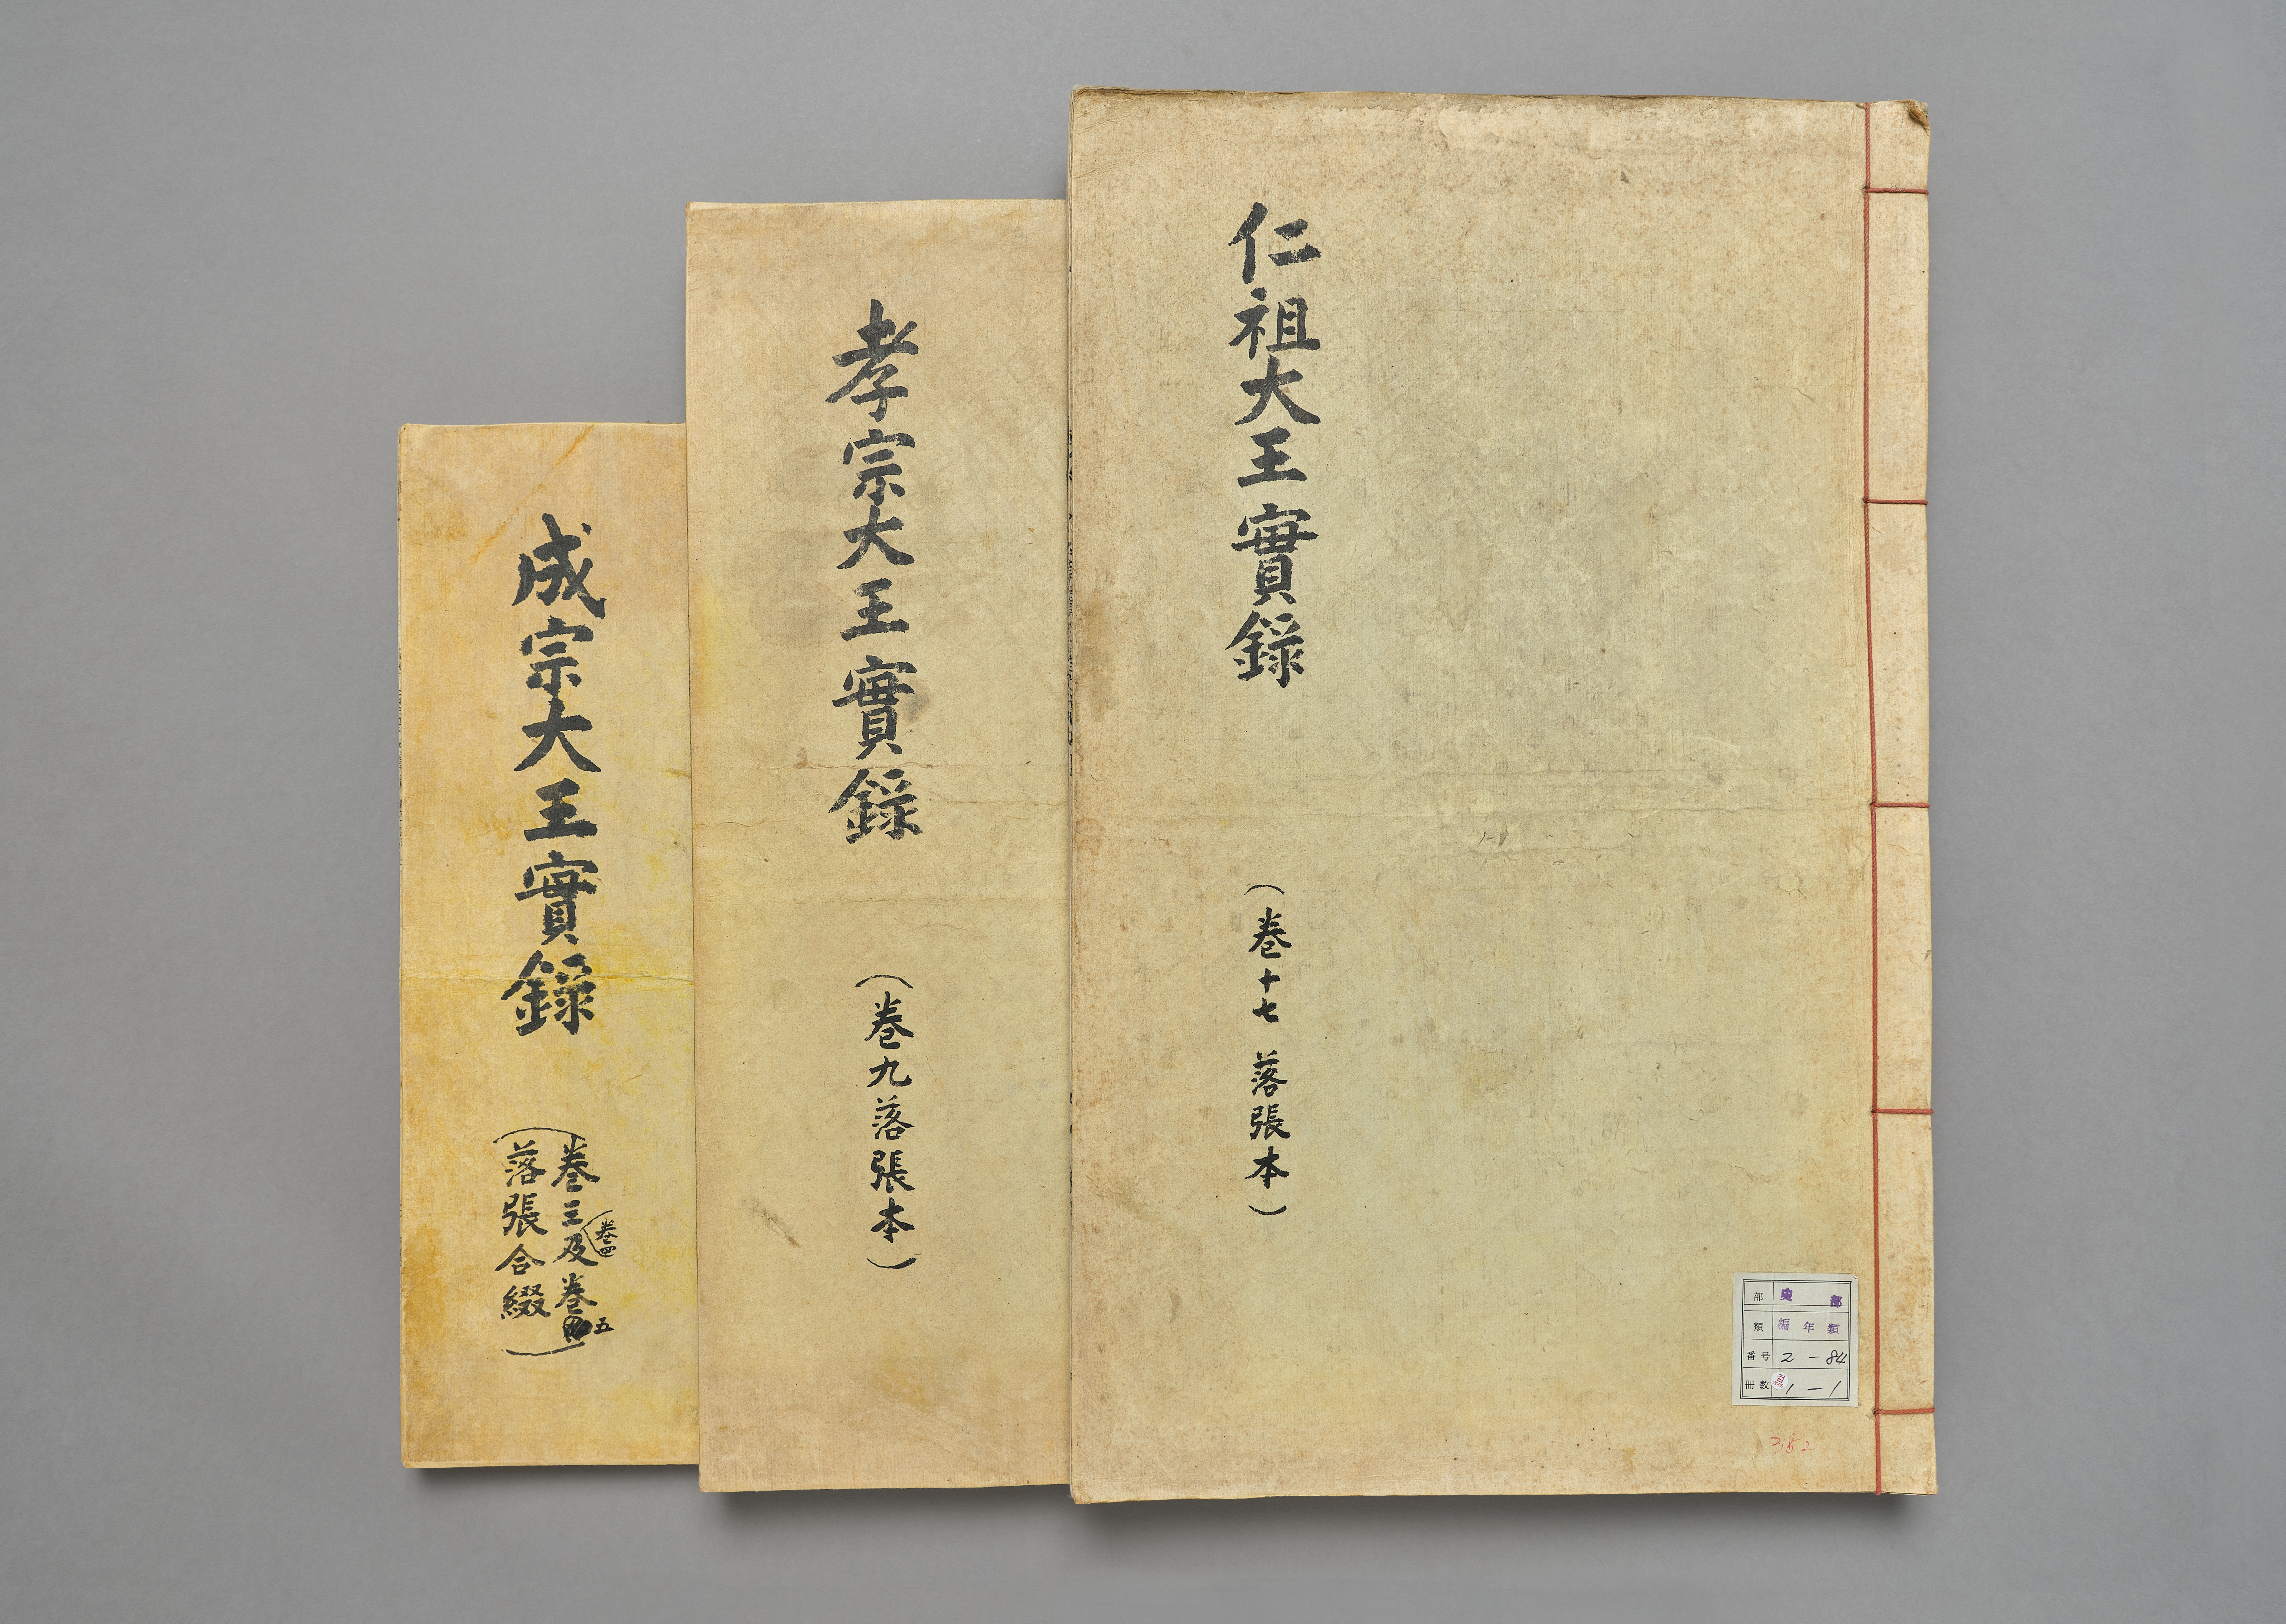 仁祖大王實錄
(巻十七 落張本)
部 史部
類 編年類
番号 2-84
冊数 1-1
352
孝宗大王實錄
(巻九落張本)
成宗大王實錄
(巻三(巻四)及巻五
落張合綴)